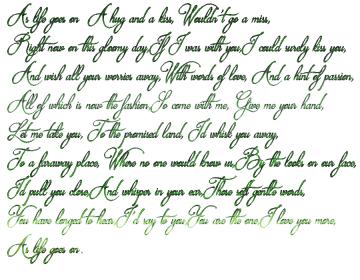 As life goes on    A hug and a kiss, Wouldn't go a miss,
Right now on this gloomy day,If I was with you,I could surely kiss you,
And wish all your worries away,With words of love, And a hint of passion,
All of which is now the fashion,So come with me, Give me your hand,
Let me take you, To the promised land, I'd whisk you away,
To a faraway place, Where no one would know us,By the looks on our face,
I'd pull you close,And whisper in your ear,Those soft gentle words,
You have longed to hear,I'd say to you,You are the one,I love you more,
As life goes on.